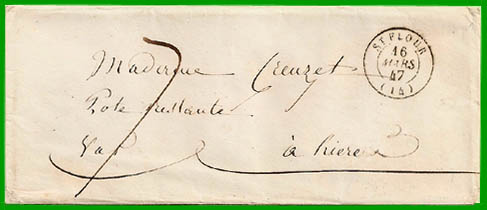 ST FLOUR
16
MARS
47
(14)
Madame Creuzet
Poste restante
Var
à hieres
7